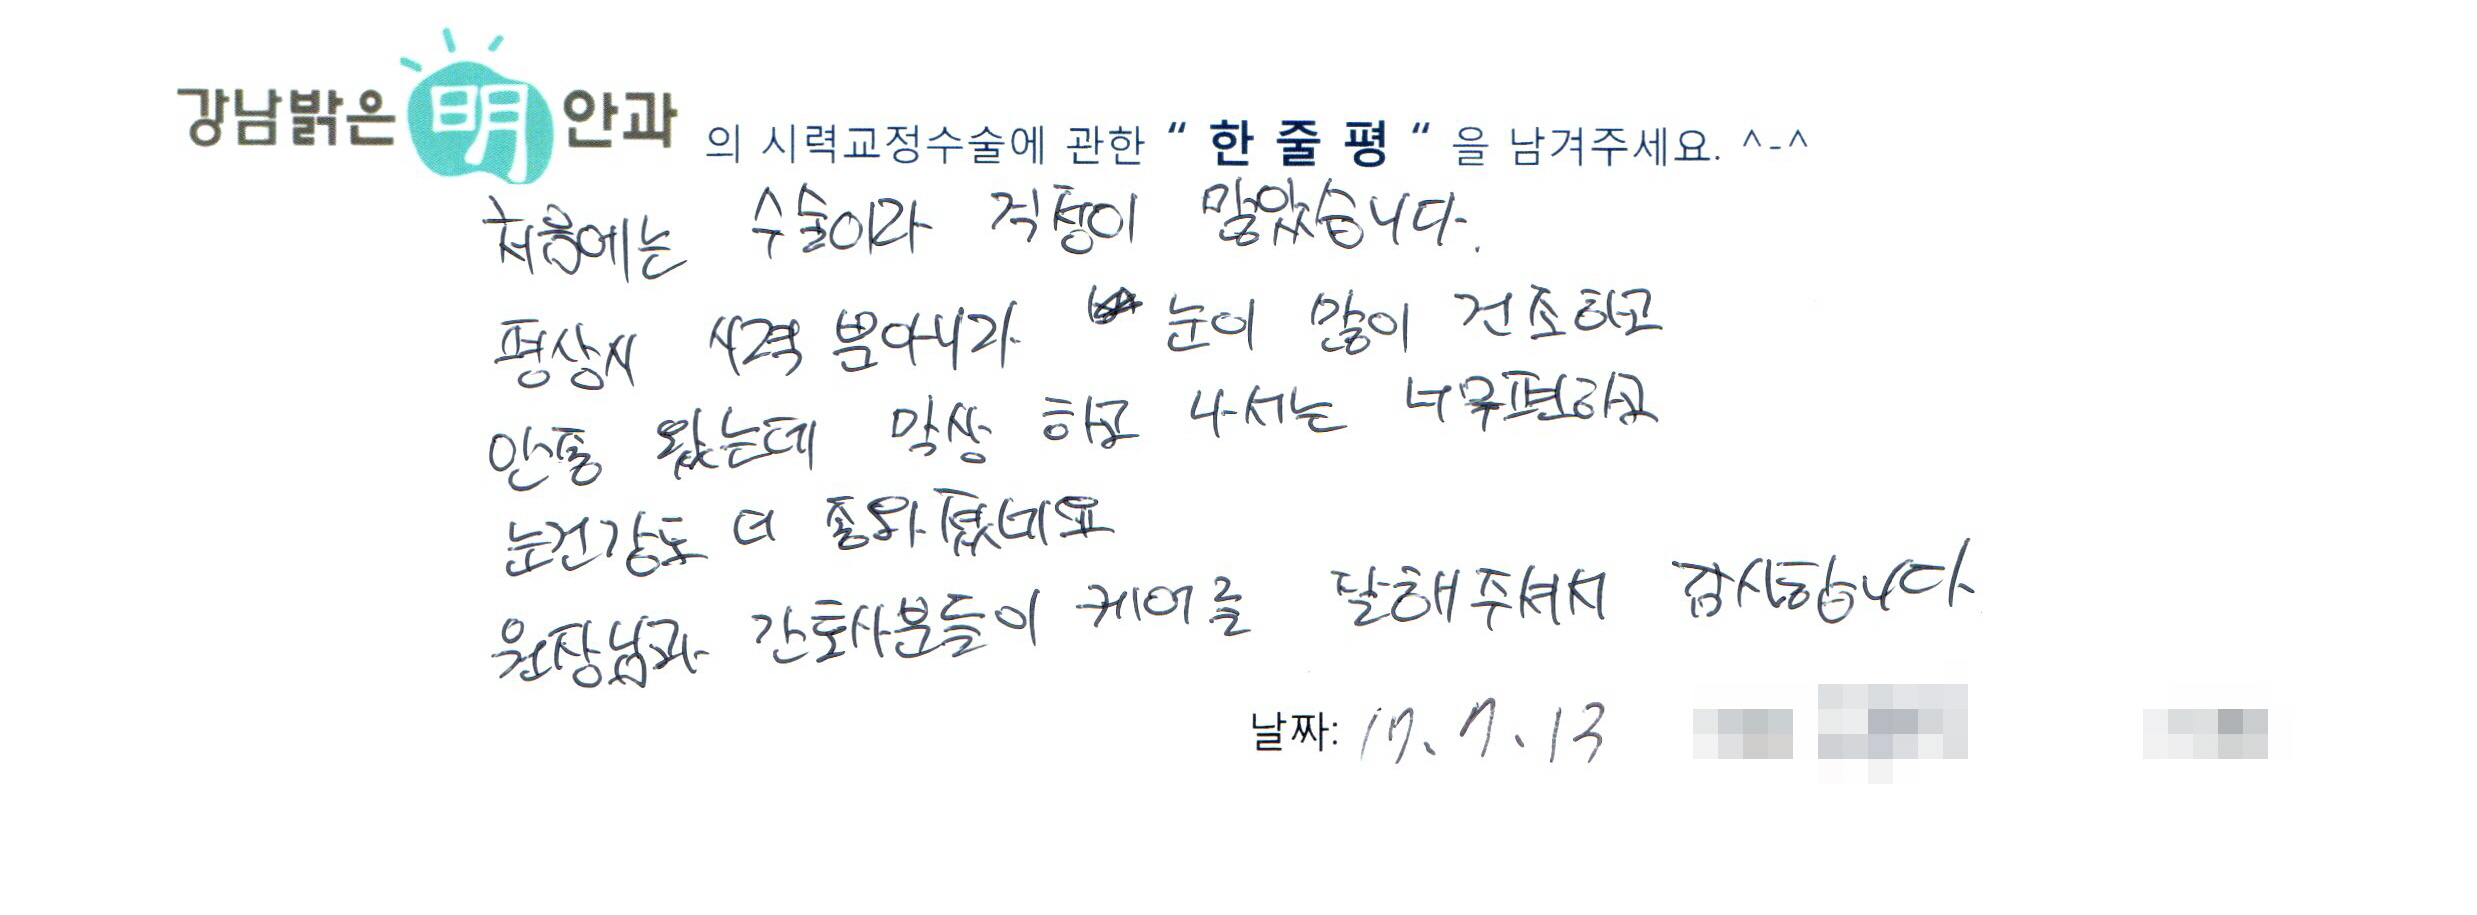 강남밝은明안과 의 시력교정수술에 관한 “ 한 줄 평 “ 을 남겨주세요. ^-^
처음에는 수술이라 걱정이 많았습니다.
평상시 시력 뿐아니라 눈이 많이 건조하고
안통 왔는데 막상 하고 나서는 너무편하고
눈건강도 더 좋와졌네요
원장님과 간호사분들이 케어를 잘해주셔서 감사합니다
날짜: 17. 7. 13